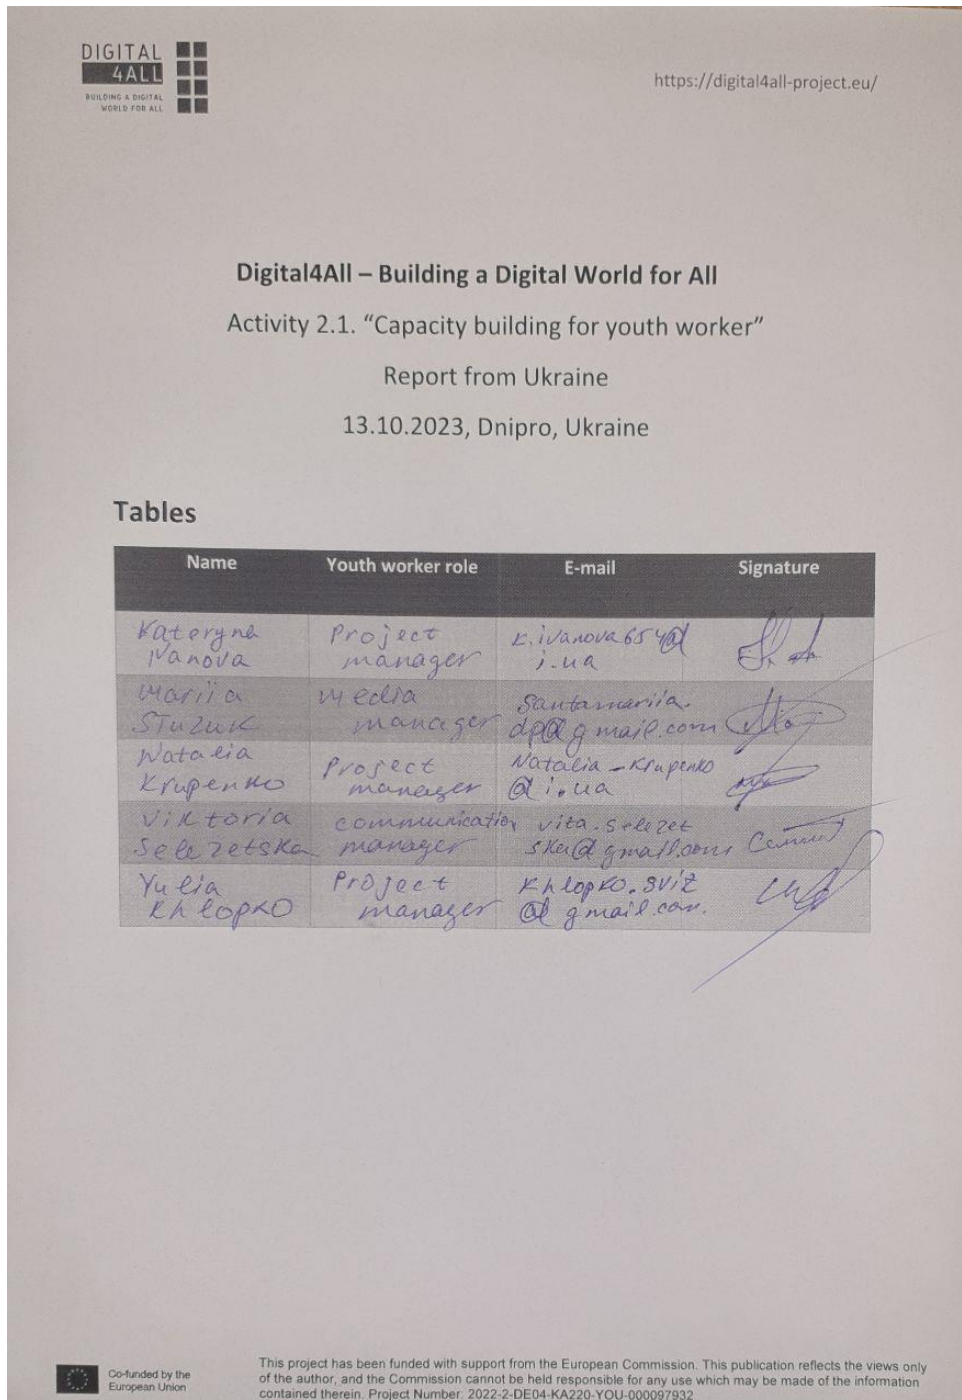 DIGITAL
4ALL
BUILDING A DIGITAL
WORLD FOR ALL
https://digital4all-project.eu/
Digital4All – Building a Digital World for All
Activity 2.1. “Capacity building for youth worker”
Report from Ukraine
13.10.2023, Dnipro, Ukraine
Tables
Name Youth worker role E-mail Signature
Kateryna Project k.ivanova654@
Ivanova manager i.ua
Mariia Media Santamariia.
manager dp@gmail.com
Natalia Project Natalia-Krupenko
Krupenko manager @i.ua
Viktoria communication vita.selezet
Selezetska manager ska@gmail.com
Yulia Project Khlopko.sviz
Khlopko manager @gmail.com.
Co-funded by the
European Union
This project has been funded with support from the European Commission. This publication reflects the views only
of the author, and the Commission cannot be held responsible for any use which may be made of the information
contained therein. Project Number: 2022-2-DE04-KA220-YOU-000097932